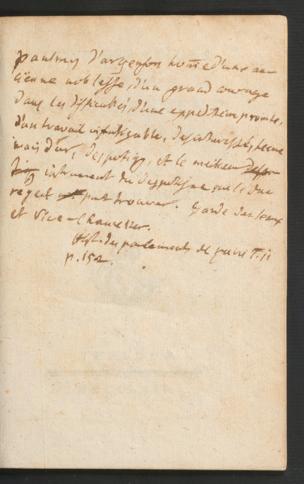 paulmy d'argenson homme d'une an
cienne noblesse, d'un grand courage
dans les difficultés, d'une expedition prompte,
d'un travail infatigable, desinteressé, ferme
mais dur, despotiq, et le meilleur
instrument du despotisme que le duc
regent put trouver. Garde des sceaux
et vice-chancelier.
hist. du parlement de paris T. ii
p. 152.